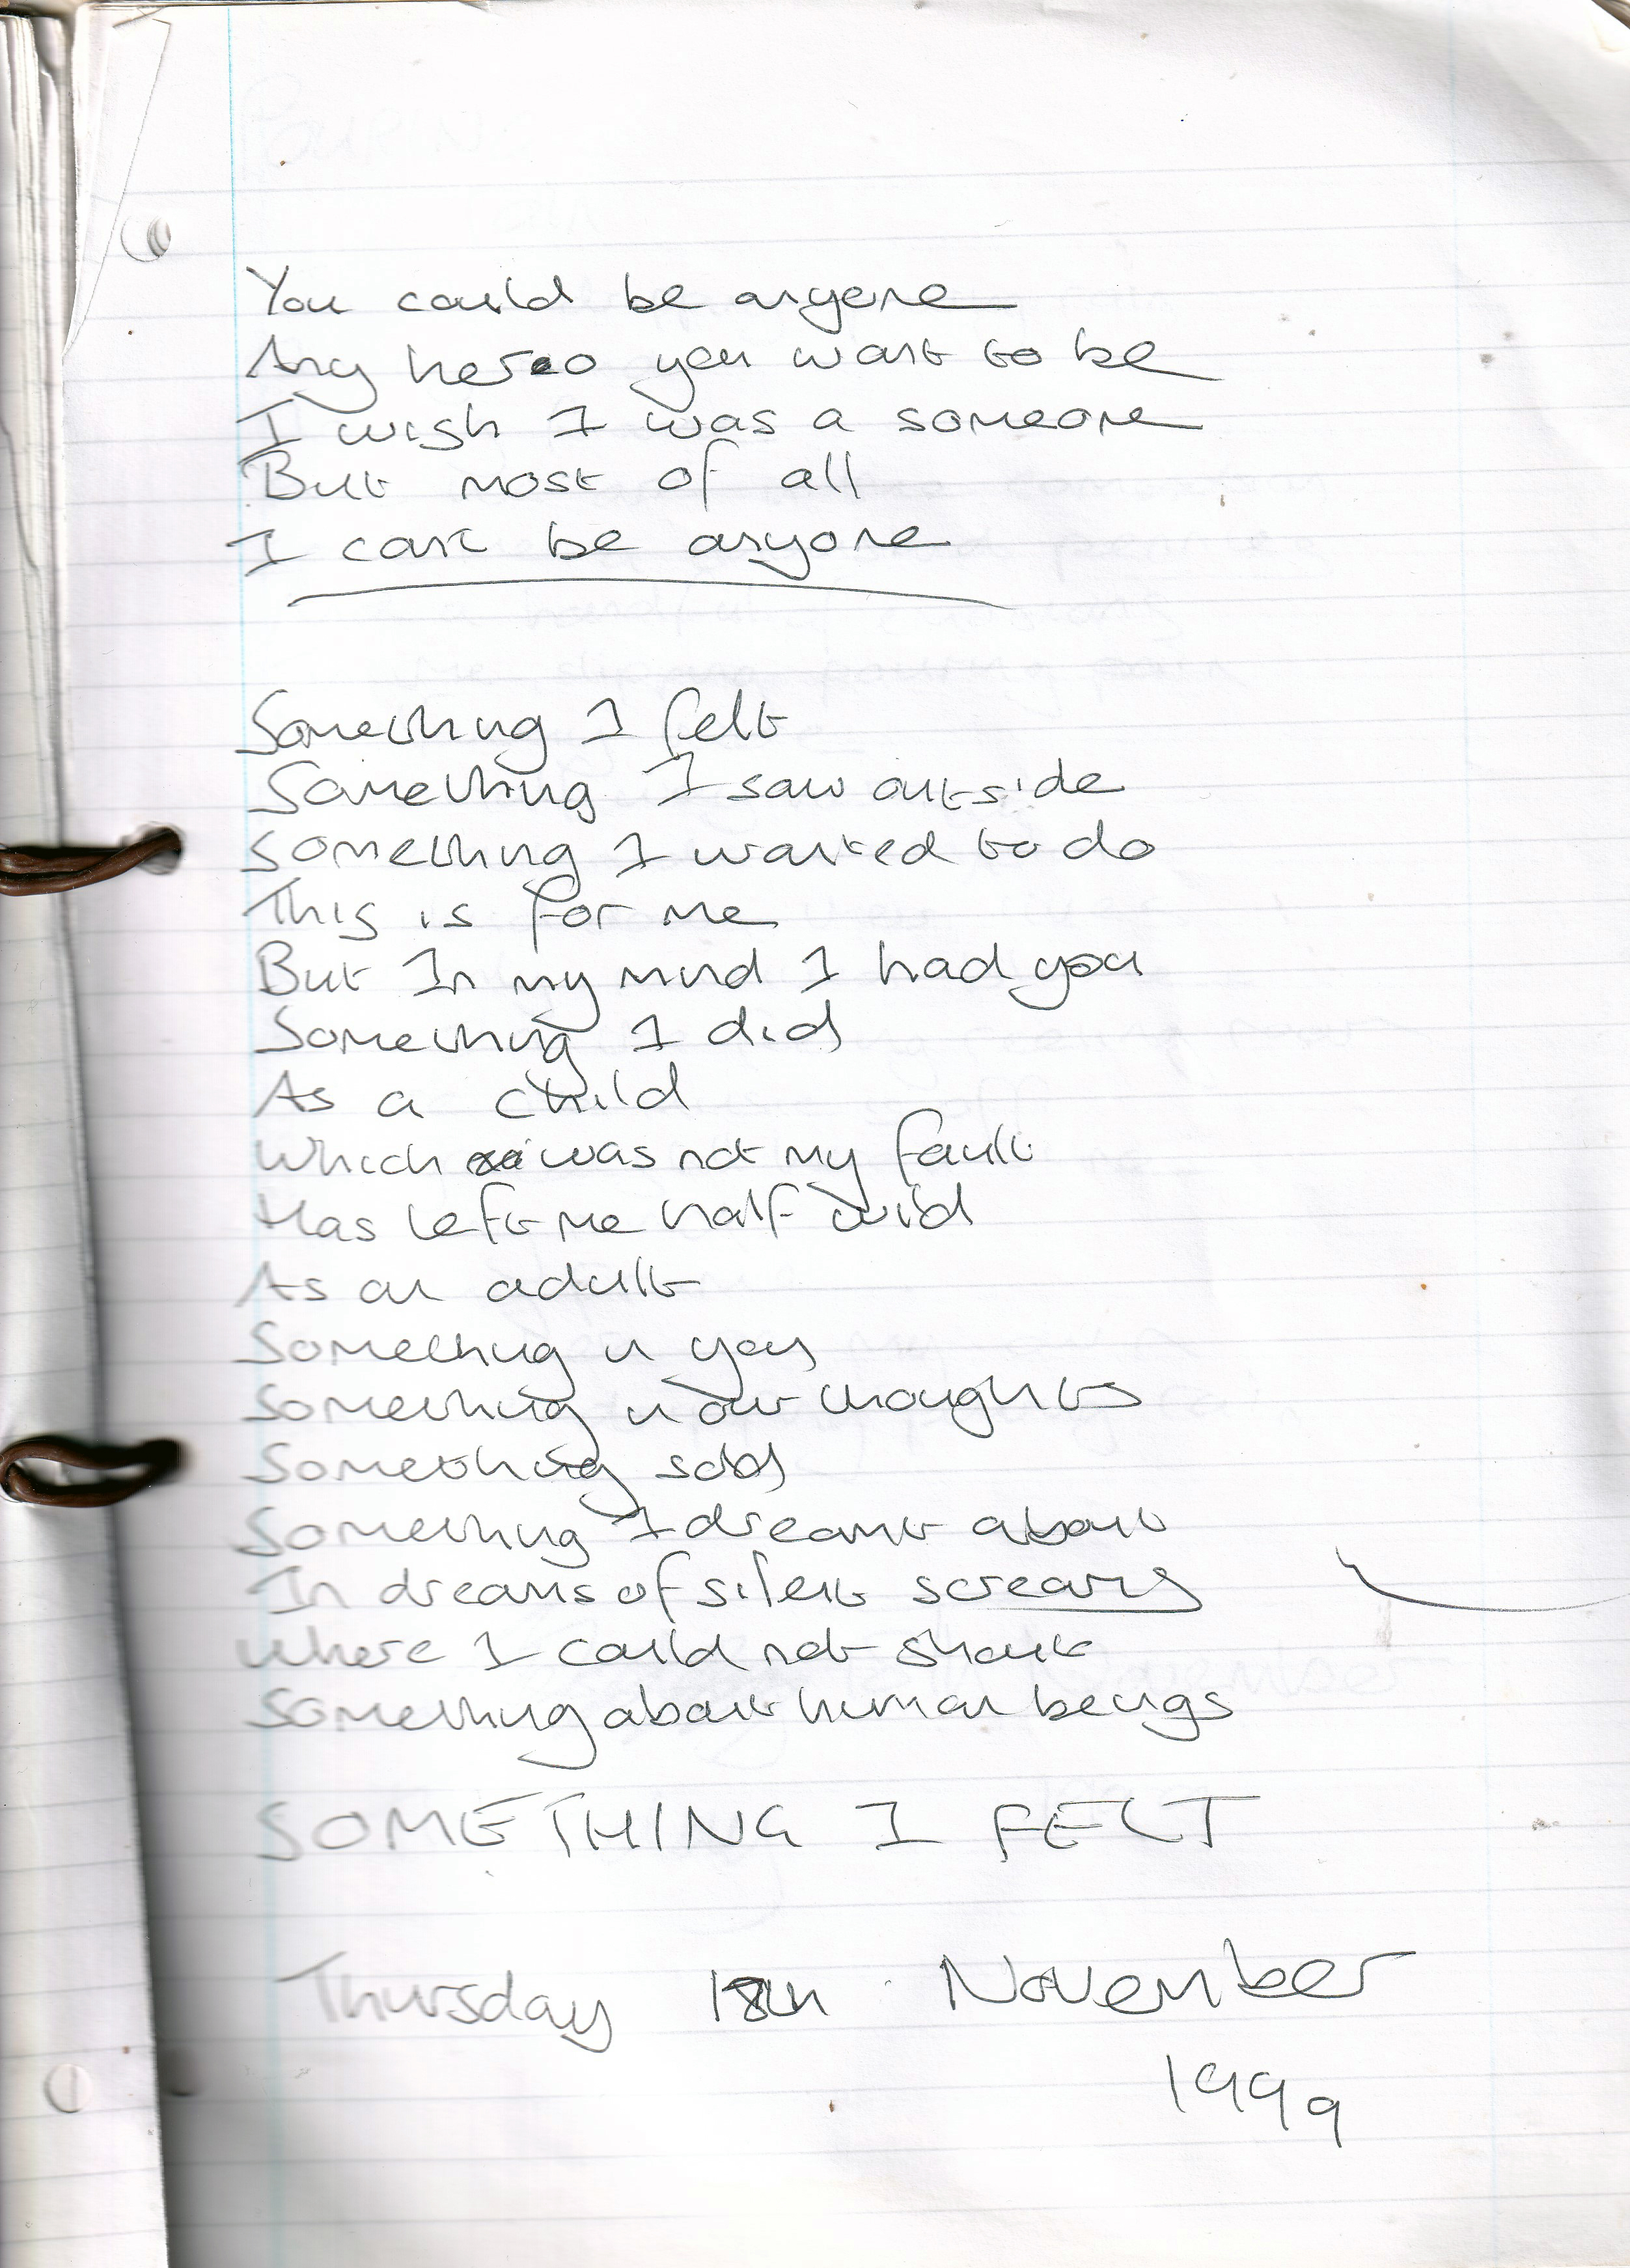 You could be anyone
Any hero you want to be
I wish I was a someone
But most of all
I cant be anyone
Something I felt
Something I saw outside
Something I wanted to do
This is for me
But In my mind I had you
Something I did
As a child
Which was not my fault
Has left me half wild
As an adult
Something in you
Something in our thoughts
Something sad
Something I dreamt about
In dreams of silent screams
Where I could not shout
Something about human beings
SOMETHING I FELT
Thursday 18th November
1999